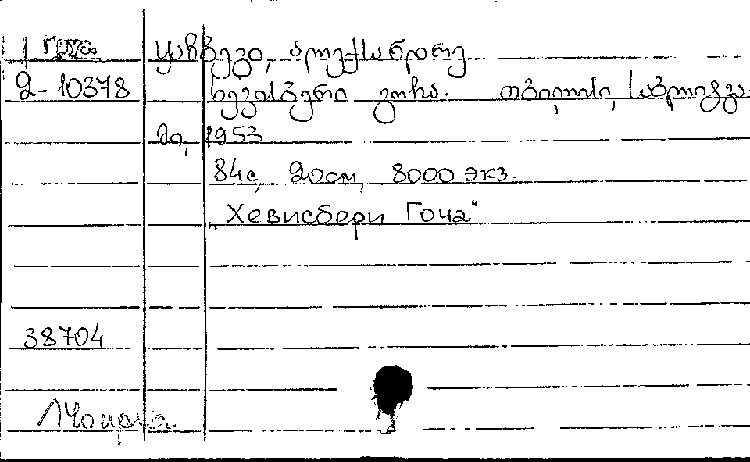 ყაზბეგი, ალექსანდრე
2-10378 ხევისბერი გოჩა. თბილისი, საბლიტგა
მო, 1953
84с, 20см, 8000 экз.
„Хевисбери Гоча"
38704